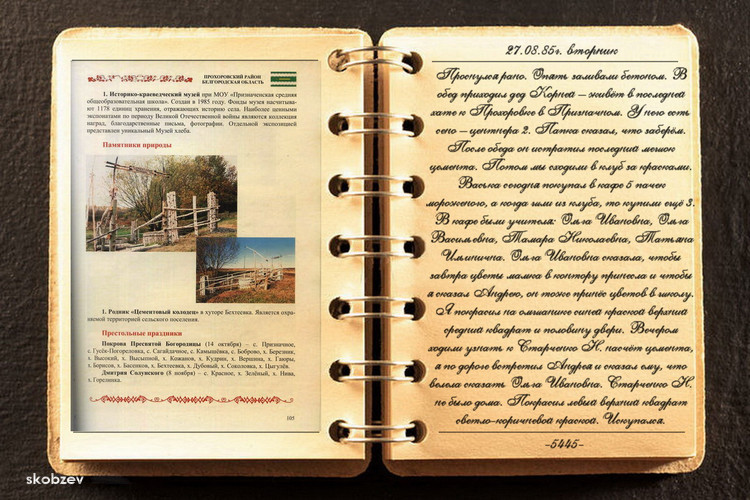 ПРОХОРОВСКИЙ РАЙОН
БЕЛГОРОДСКАЯ ОБЛАСТЬ
1. Историко-краеведческий музей при МОУ «Призначенская средняя
общеобразовательная школа». Создан в 1985 году. Фонды музея насчитыва-
ют 1178 единиц хранения, отражающих историю села. Наиболее ценными
экспонатами по периоду Великой Отечественной войны являются коллекция
наград, благодарственные письма, фотографии. Отдельной экспозицией
представлен уникальный Музей хлеба.
Памятники природы
1. Родник «Цементовый колодец» в хуторе Бехтеевка. Является охра-
няемой территорией сельского поселения.
Престольные праздники
Покрова Пресвятой Богородицы (14 октября) – с. Призначное,
с. Гусёк-Погореловка, с. Сагайдачное, с. Камышёвка, с. Боброво, х. Березник,
х. Высокий, х. Высыпной, х. Кожанов, х. Кудрин, х. Вершина, х. Гаюры,
х. Борисов, х. Васенков, х. Бехтеевка, х. Дубовый, х. Соколовка, х. Цыгулёв.
Дмитрия Солунского (8 ноября) – с. Красное, х. Зелёный, х. Нива,
х. Горелинка.
105
27.08.85г. вторник
Проснулся рано. Опять заливали бетоном. В
обед приходил дед Корней – живёт в последней
хате к Прохоровке в Призначном. У него есть
сено – центнера 2. Папка сказал, что заберём.
После обеда он истратил последний мешок
цемента. Потом мы сходили в клуб за красками.
Васька сегодня покупал в кафе 5 пачек
мороженого, а когда шли из клуба, то купили ещё 3.
В кафе были учителя: Ольга Ивановна, Ольга
Васильевна, Тамара Николаевна, Татьяна
Ильинична. Ольга Ивановна сказала, чтобы
завтра цветы мамка в контору принесла и чтобы
я сказал Андрею, он тоже принёс цветов в школу.
Я покрасил на омшанике синей краской верхний
средний квадрат и половину двери. Вечером
ходили узнать к Старченко Н. насчёт цемента,
а по дороге встретил Андрея и сказал ему, что
велела сказать Ольга Ивановна. Старченко Н.
не было дома. Покрасил левый верхний квадрат
светло-коричневой краской. Искупался.
-5445-
skobzev